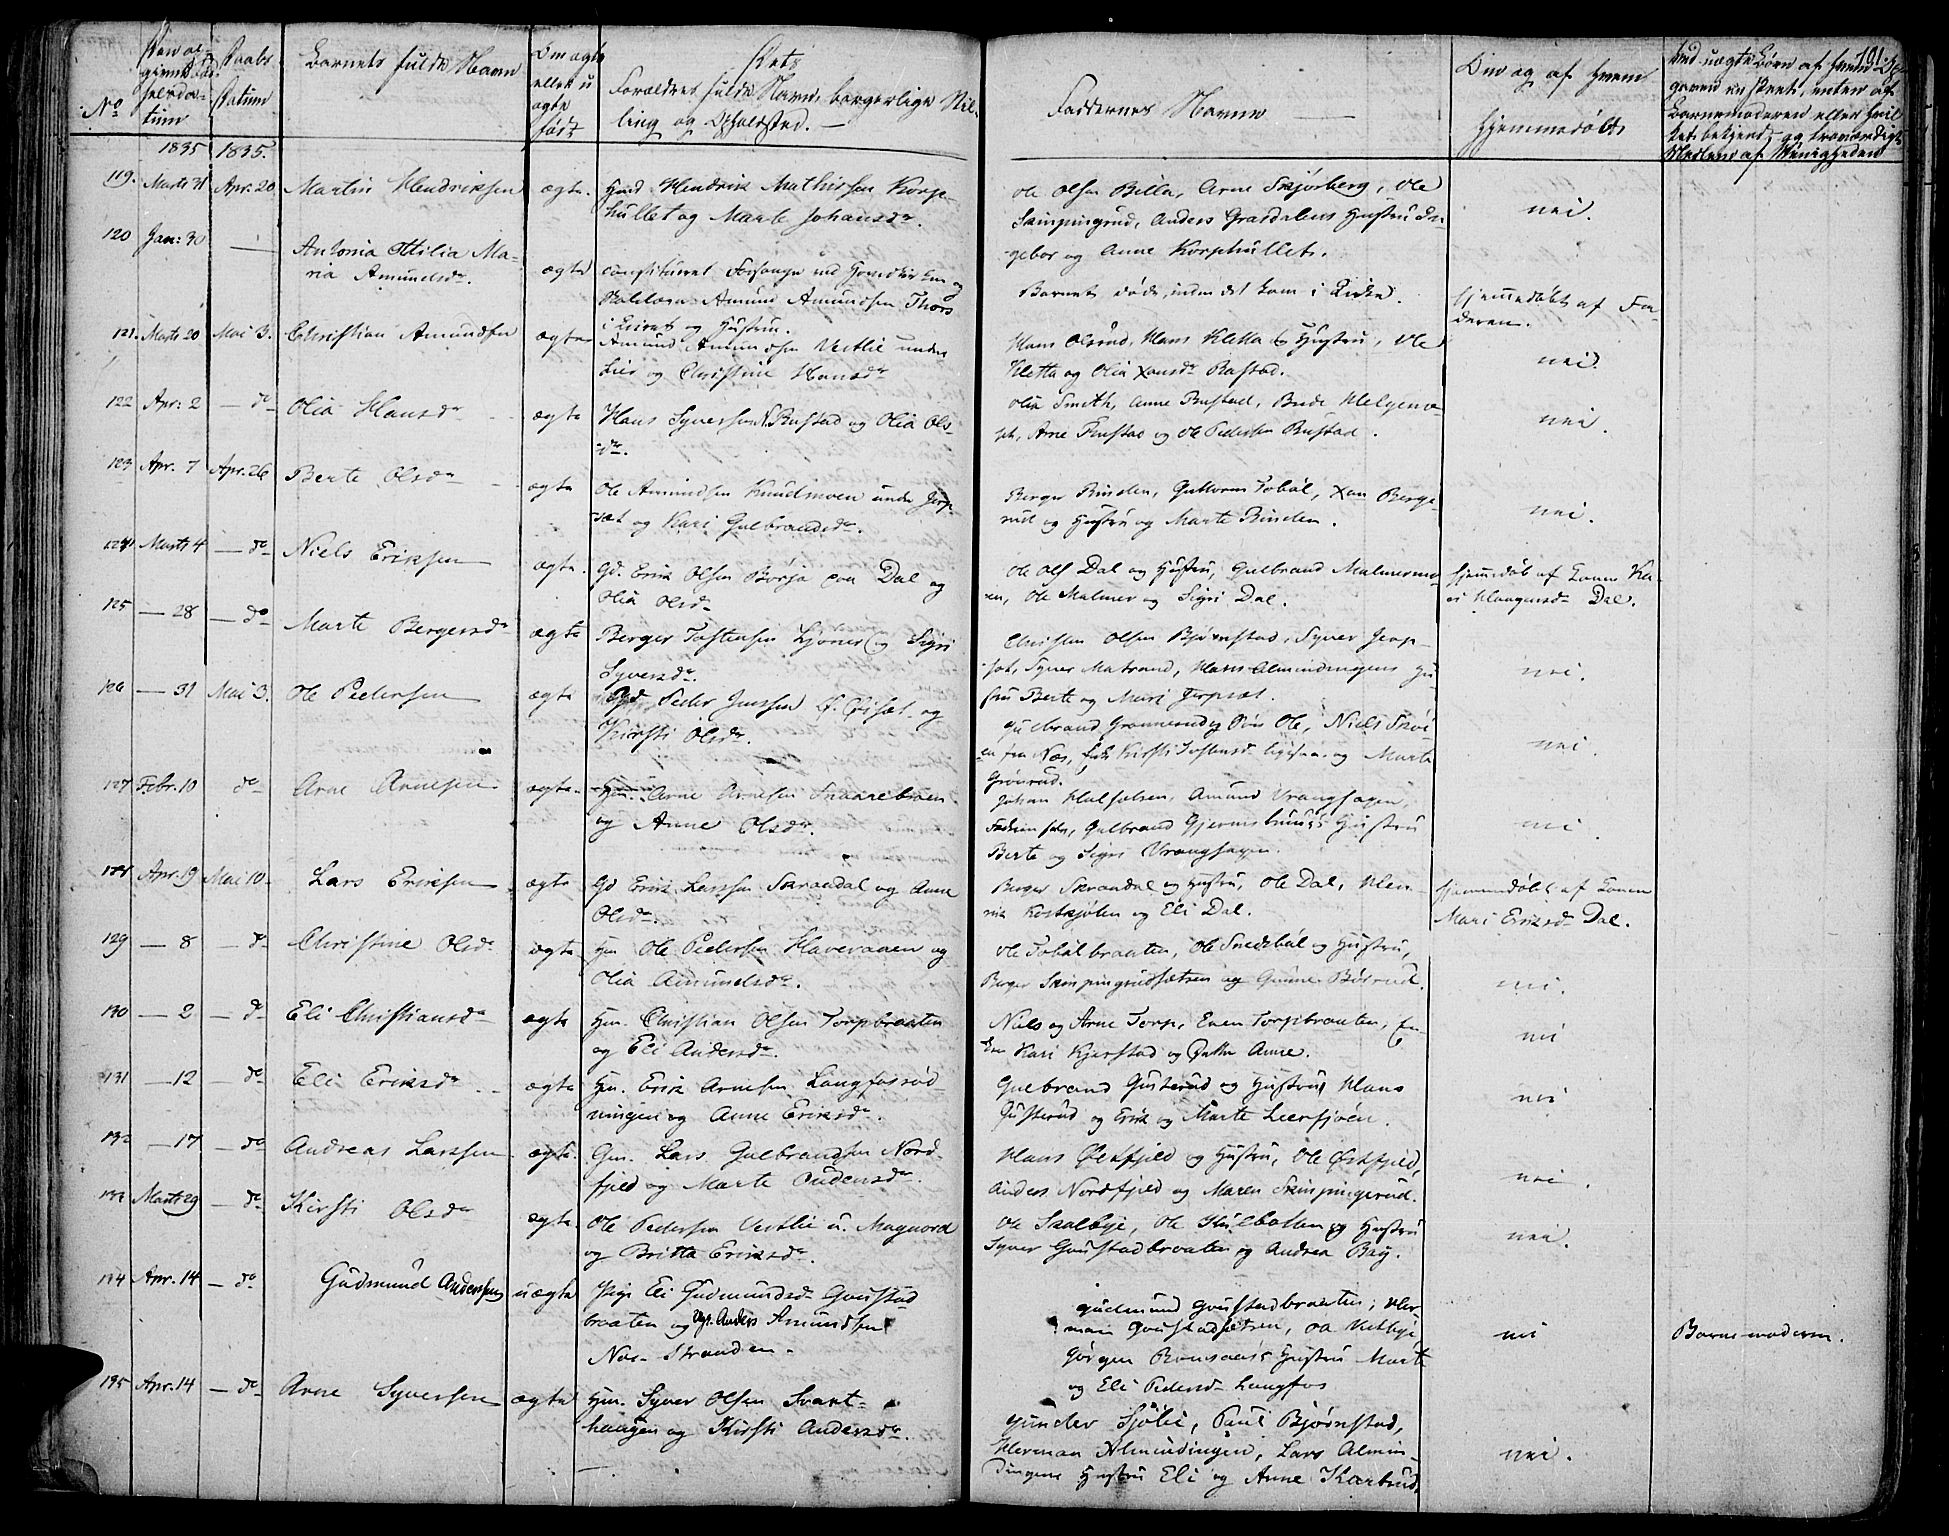 101.
No
Barnets fulde Navn
Forældres fulde Navn, borgerlige Stil-
ling og Opholdsted. —
Faddernes Navne —
Om og af hvem
hjemmedøbt
1835 1835.
119. Marts 31 Apr. 20 Martin Hendriksen ægte. Hendrik Mathissen Korp-
hullet og Marte Johansdr.
Ole Olsen Bella, Arne Skjørberg, Ole
Skinpingrud, Anders Grasdalens Hustru In-
gebor og Anne Korphullet.
nei.
120 Jan: 30 — Antonia Otilia Ma-
ria Amundsdr. ægte
Amund Amundsen Thors
og Hustru.
Barnet døde, inden det kom i Kirke.
hjemmedøbt af Fa-
deren.
121. Marts 20 Mai 3. Christian Amundsen ægte Amund Amundsen Vestlie under
Lier og Christine Hansdr
Hans Olsrud, Hans Kletta og Hustru, Ole
Kletta og Olia Hansdr Rastad.
nei.
122 Apr: 2 — do Olia Hansdr ægte Hans Syversen N. Rustad og Olia Ols-
dr.
Olia Smith, Anne Rustad,
Arne Rustad og Ole Pedersen Rustad.
nei.
123 Apr. 7 Apr. 26 Berte Olsdr ægte Ole Amundsen Knudmoen under Jerp-
sæt og Kari Gulbrandsdr.
Berger Binden, Guttorm Tobøl,
og Hustru og Marte Binden.
nei.
124 Marts 4 — do Niels Eriksen ægte. Gd. Erik Olsen Børja paa Dal og
Olia Olsdr
Ole Ols Dal og Hustru, Gulbrand Malmermo-
en, Ole Malmer og Sigri Dal.
hjemmedøb af Konen Ka-
ri Haagensdr Dal.
125 — 28 — do Marte Bergersdr ægte Berger Tostensen Ljøner og Sigri
Syversdr.
Christen Olsen Bjørnstad, Syver Jerp-
sæt, Syver Matrand, Hans Almindingens Hu-
stru Berte og Mari Jerpsæt.
nei.
126 — 31 Mai 3. Ole Pedersen ægte Gd. Peder Jenssen Ø. Øisæt og
Kirsti Olsdr.
Gulbrand Grønnerud og Søn Ole, Niels
fra Næs, og Marte
Grønrud.
nei.
127 Febr. 10 do Arne Arnesen ægte. Hm. Arne Arnesen Snaarebraaen
og Anne Olsdr.
Johan Halfølsen, Amund Vranghagen,
Gulbrand Gjermshuus's Hustru
Berte og Sigri Vranghagen.
nei.
128 Apr. 19 Mai 10. Lars Eriksen ægte Gd Erik Larssen Skrandal og Anne
Olsdr.
Berger Skrandal og Hustru, Ole Dal, Hen-
rik Kostkjølen og Eli Dal.
hjemmedøbt af Konen
Mari Eriksdr Dal.
129 — 8 — do Christine Olsdr ægte Hm Ole Pedersen Haveraaen og
Olia Amundsdr.
Ole Tobølbraaten, Ole Snedsbøl og Hustru,
Berger Skinpingrudsætren og Gunne Børrud.
nei.
130 — 2 — do Eli Christiansdr ægte Hm. Christian Olsen Torpbraaten
og Eli Andersdr.
Niels og Arne Torp, Even Torpbraaten, En-
ken Kari Kjerstad og Anne.
nei
131 — 12 — do Eli Eriksdr ægte Hm. Erik Arnesen Langfosrød-
ningen og Anne Eriksdr.
Gulbrand Gusterud og Hustru, Hans
Gusterud og Erik og Marte Leerhjoen.
nei
132 — 17 — do Andreas Larssen ægte. Gm. Lars Gulbrandsen Nord-
fjeld og Marte Audensdr.
Hans Østfjeld og Hustru, Ole Østfjeld,
Anders Nordfjeld og Maren Skinpingerud.
nei.
133 Marts 29 — do Kirsti Olsdr ægte. Ole Pedersen Vestlie u. Magnord
og Britta Eriksdr.
Ole Skalbye, Ole Hulbotten og Hustru
Syver Goustadbraaten og Andrea Bay.
nei.
134 Apr. 14 — do Gudmund Andersen uægte Pige Eli Gudmundsdr Goustad-
braaten og Anders Amundsen
Nor-Stranden.
Gudmund Goustadbraaten, Her-
man Goustadsætren, Ola Vestbye,
Jørgen Hustru Marte
og Eli Pedersdr Langfos
nei
Barnemoderen.
135 Apr. 14 — do Arne Syversen ægte Hm. Syver Olsen Svart-
haugen og Kirsti Andersdr.
Gunder Sjølie, Paul Bjørnstad,
Herman Almindingen, Lars Almin-
dingens Hustru Eli og Anne Skarbrud.
nei.